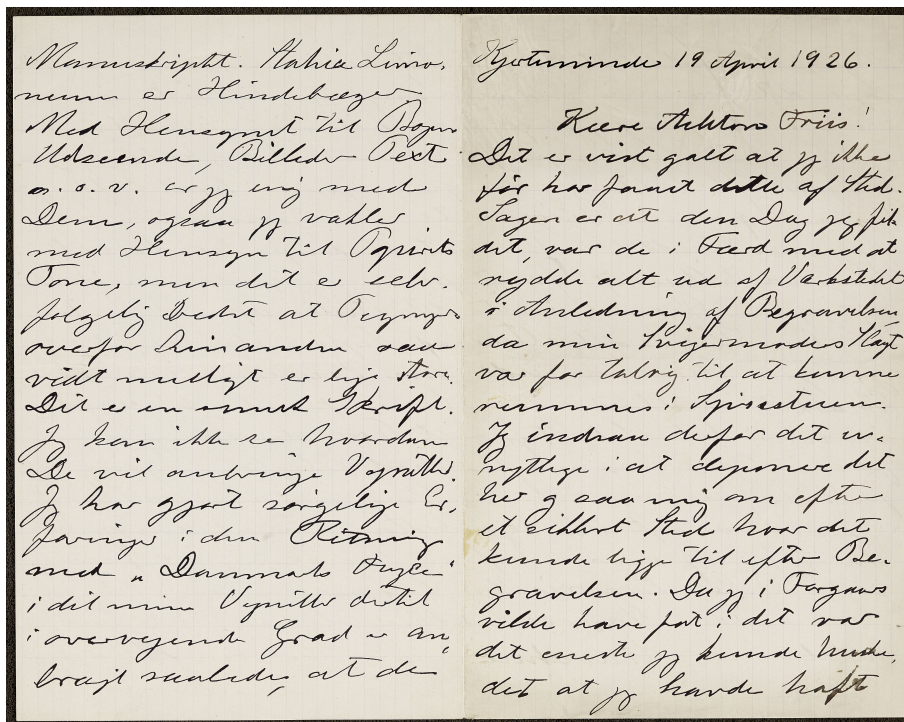 Kjerteminde 19 April 1926.
Kære Achton Friis!
Det er vist galt at jeg ikke
før har faaet dette af Sted.
Sagen er at den Dag jeg fik
det, var de i Færd med at
rydde alt ud af Værkstedet
i Anledning af Begravelsen,
da min Svigermoders Slægt
var for talrig til at kunne
rummes i Spisestuen.
Jeg indsaa derfor det u-
nyttige i at deponere det
her og saa mig om efter
et sikkert Sted hvor det
kunde ligge til efter Be-
gravelsen. Da jeg i Forgaars
vilde have fat i det var
det eneste jeg kunde huske,
det at jeg havde haft
Manuskriptet. Statice Limo-
neum er Hindebæger
Med Hensynet til Bogens
Udseende, Billeder Text
o. s. v. er jeg enig med
Dem, ogsaa jeg vakler
med Hensyn til Papirets
Tone, men det er selv-
følgelig bedst at Tegninger
overfor hinanden saa
vidt muligt er lige store.
Det er en smuk Skrift.
Jeg kan ikke se hvordan
De vil anbringe Vignetter.
Jeg har gjort sørgelige Er-
faringer i den Retning
med "Danmarks Fugle"
idet mine Vignetter dertil
i overvejende Grad er an-
bragt saaledes, at de